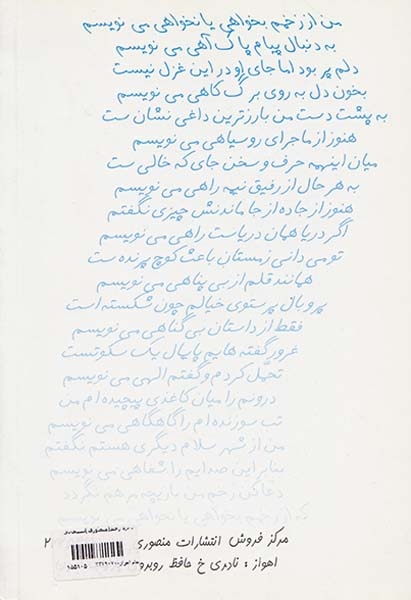 من از زخمم بخواهی یا نخواهی می نویسم
به دنبال پیام پاک آهی می نویسم
دلم پر بود اما جای او در این غزل نیست
بخون دل به روی برگ کاهی می نویسم
به پشت دست من بارزترین داغی نشان ست
هنوز از ماجرای روسیاهی می نویسم
میان اینهمه حرف و سخن جای که خالی ست
به هر حال از رفیق نیمه راهی می نویسم
هنوز از جاده از جا ماندنش چیزی نگفتم
اگر دریا همان دریاست راهی می نویسم
تو می دانی زمستان باعث کوچ پرنده ست
همانند قلم از بی پناهی می نویسم
پر و بال پرستوی خیالم چون شکسته است
فقط از داستان بی گناهی می نویسم
غرور گفته هایم پایمال یک سکوتست
تحمّل کردم و گفتم الهی می نویسم
درونم را میان کاغذی پیچیده ام من
تب سوزنده ام را گاهگاهی می نویسم
من از شهر سلام دیگری هستم نگفتم
بنابر این صدایم را شفاهی می نویسم
دعا کن زخم من بازیچه مرهم نگردد
که از زخمم بخواهی یا نخواهی می نویسم
مرکز فروش انتشارات منصوری
اهواز : نادری خ حافظ